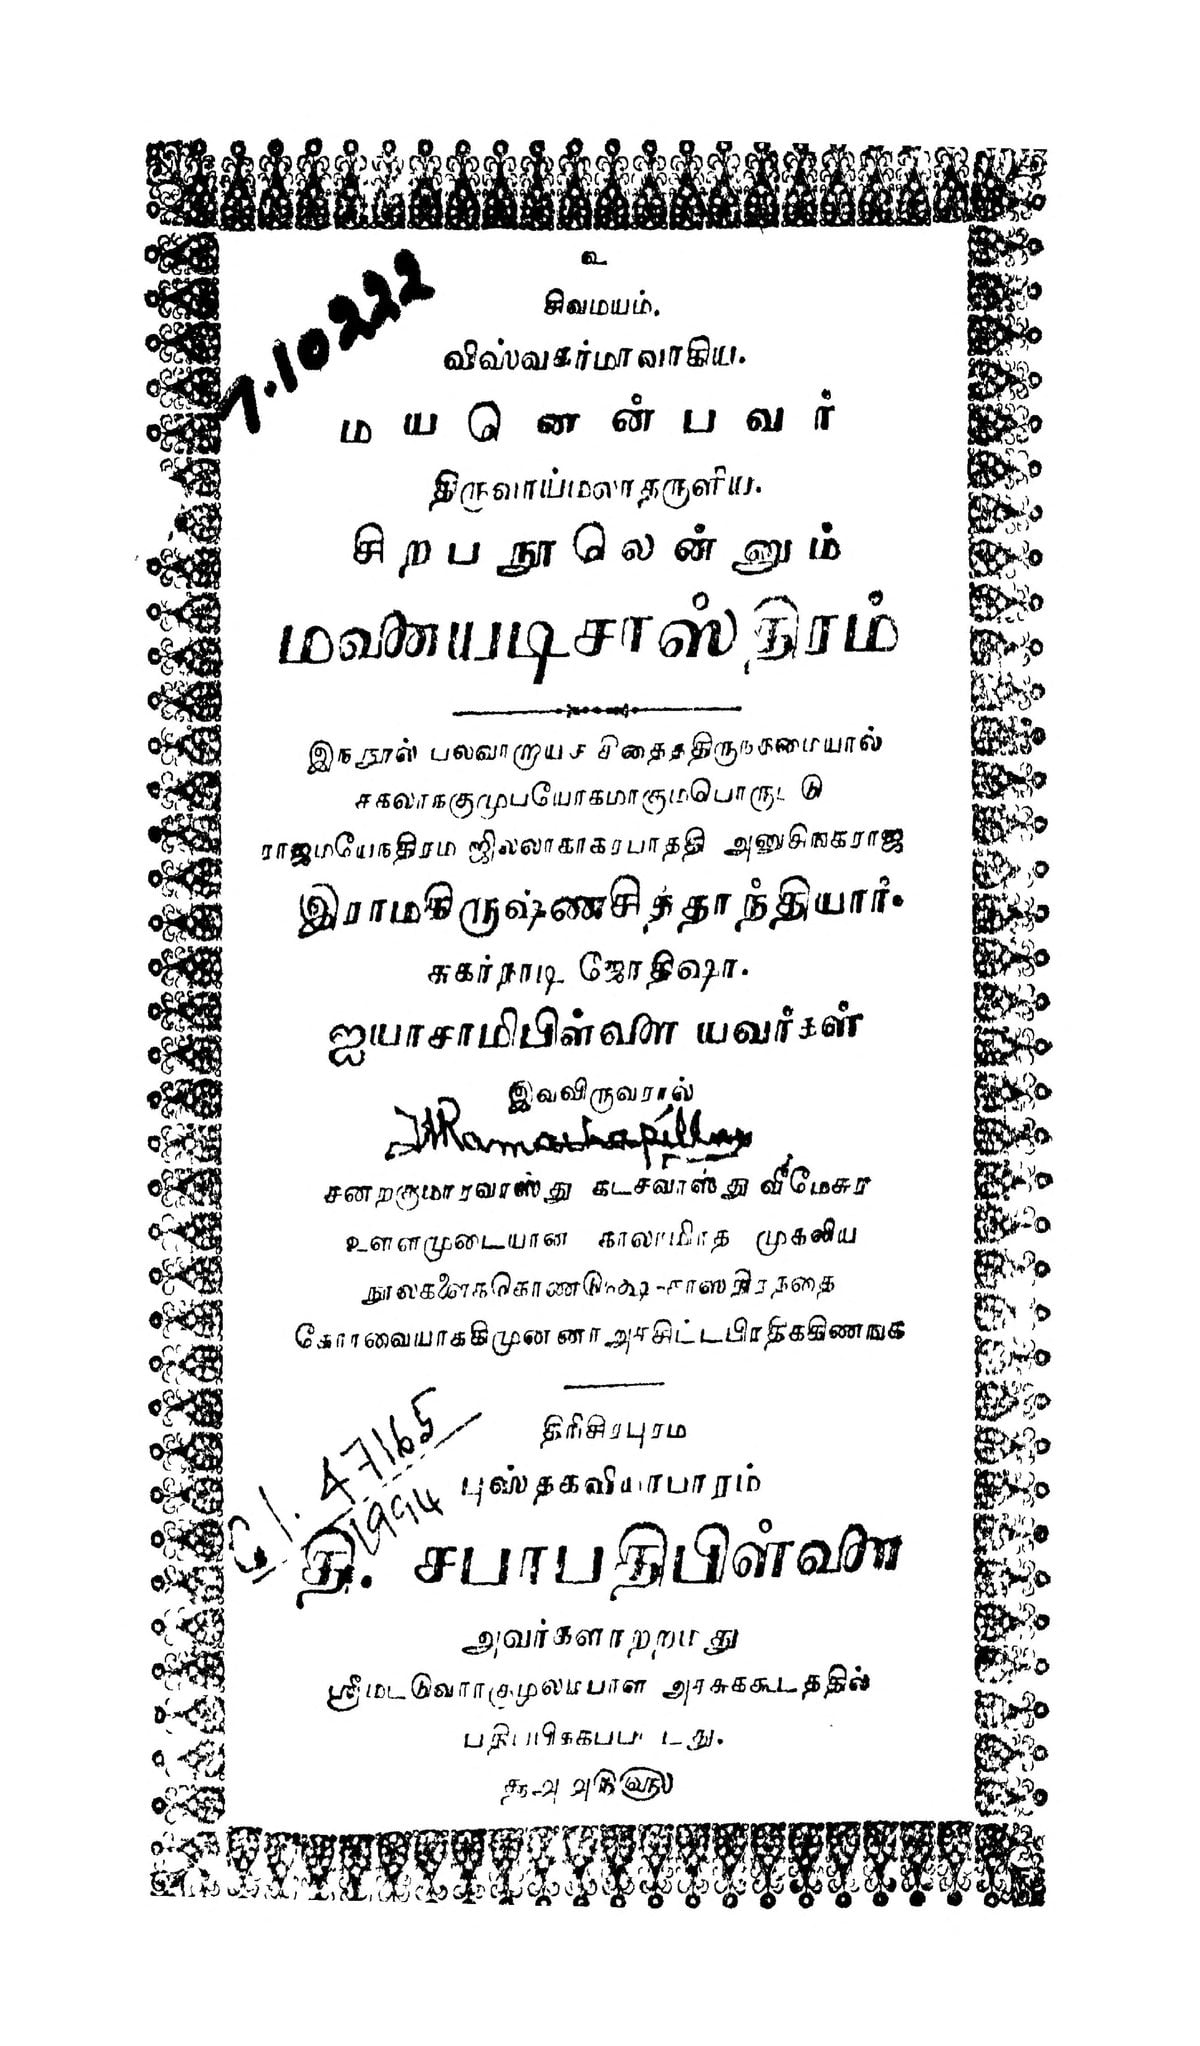 உ
சிவமயம்.
7.10222
விஸ்வகர்மாவாகிய.
மயனென்பவர்
திருவாய்மலாதருளிய.
சிறபநூலென்னும்
மனையடிசாஸ்திரம்
இநநூல் பலவாறாயச சிதைநதிருநகமையால்
சகலாகுகுமுபயோகமாகுமபொருடடு
ராஜமயேநதிரம ஜில்லாகாகரபாததி அனுசிஙகராஜ
இராமகிருஷ்ணசித்தாந்தியார்.
சுகர்நாடி ஜோதிஷா.
ஐயாசாமிபிள்ளை யவர்கள்
இவவிருவரால்
சனறகுமாரவாஸ்து கடசவாஸ்து வீமேசுர
உளளமுடையான காலாமிாத முகலிய
நூலகளைகொணடு
கோாவையாககிமுனனா அசசிட்டபிரதிககிணஙக
G1. 47165
1994
திரிசிரபுரம
புஸ்தகவியாபாரம்
தி. சபாபதிபிள்ளை
அவர்களாற்றமது
ஸ்ரீமடடுவாாகுழலமபாள அசசுககூடததில்
பதிபபிககபபடடது.